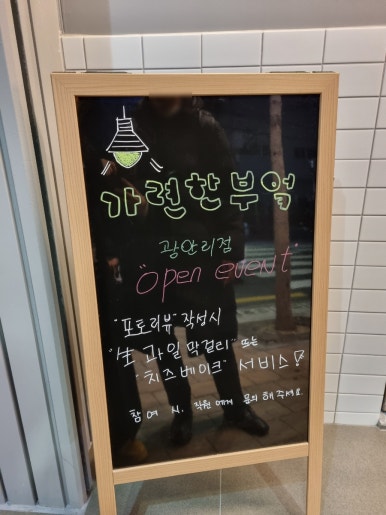 가련한부엌
광안리점
"open event
"포토리뷰" 작성시
"生과일 막걸리" 또는
"치즈베이크" 서비스!
참여 시, 직원에게 문의해주세요.